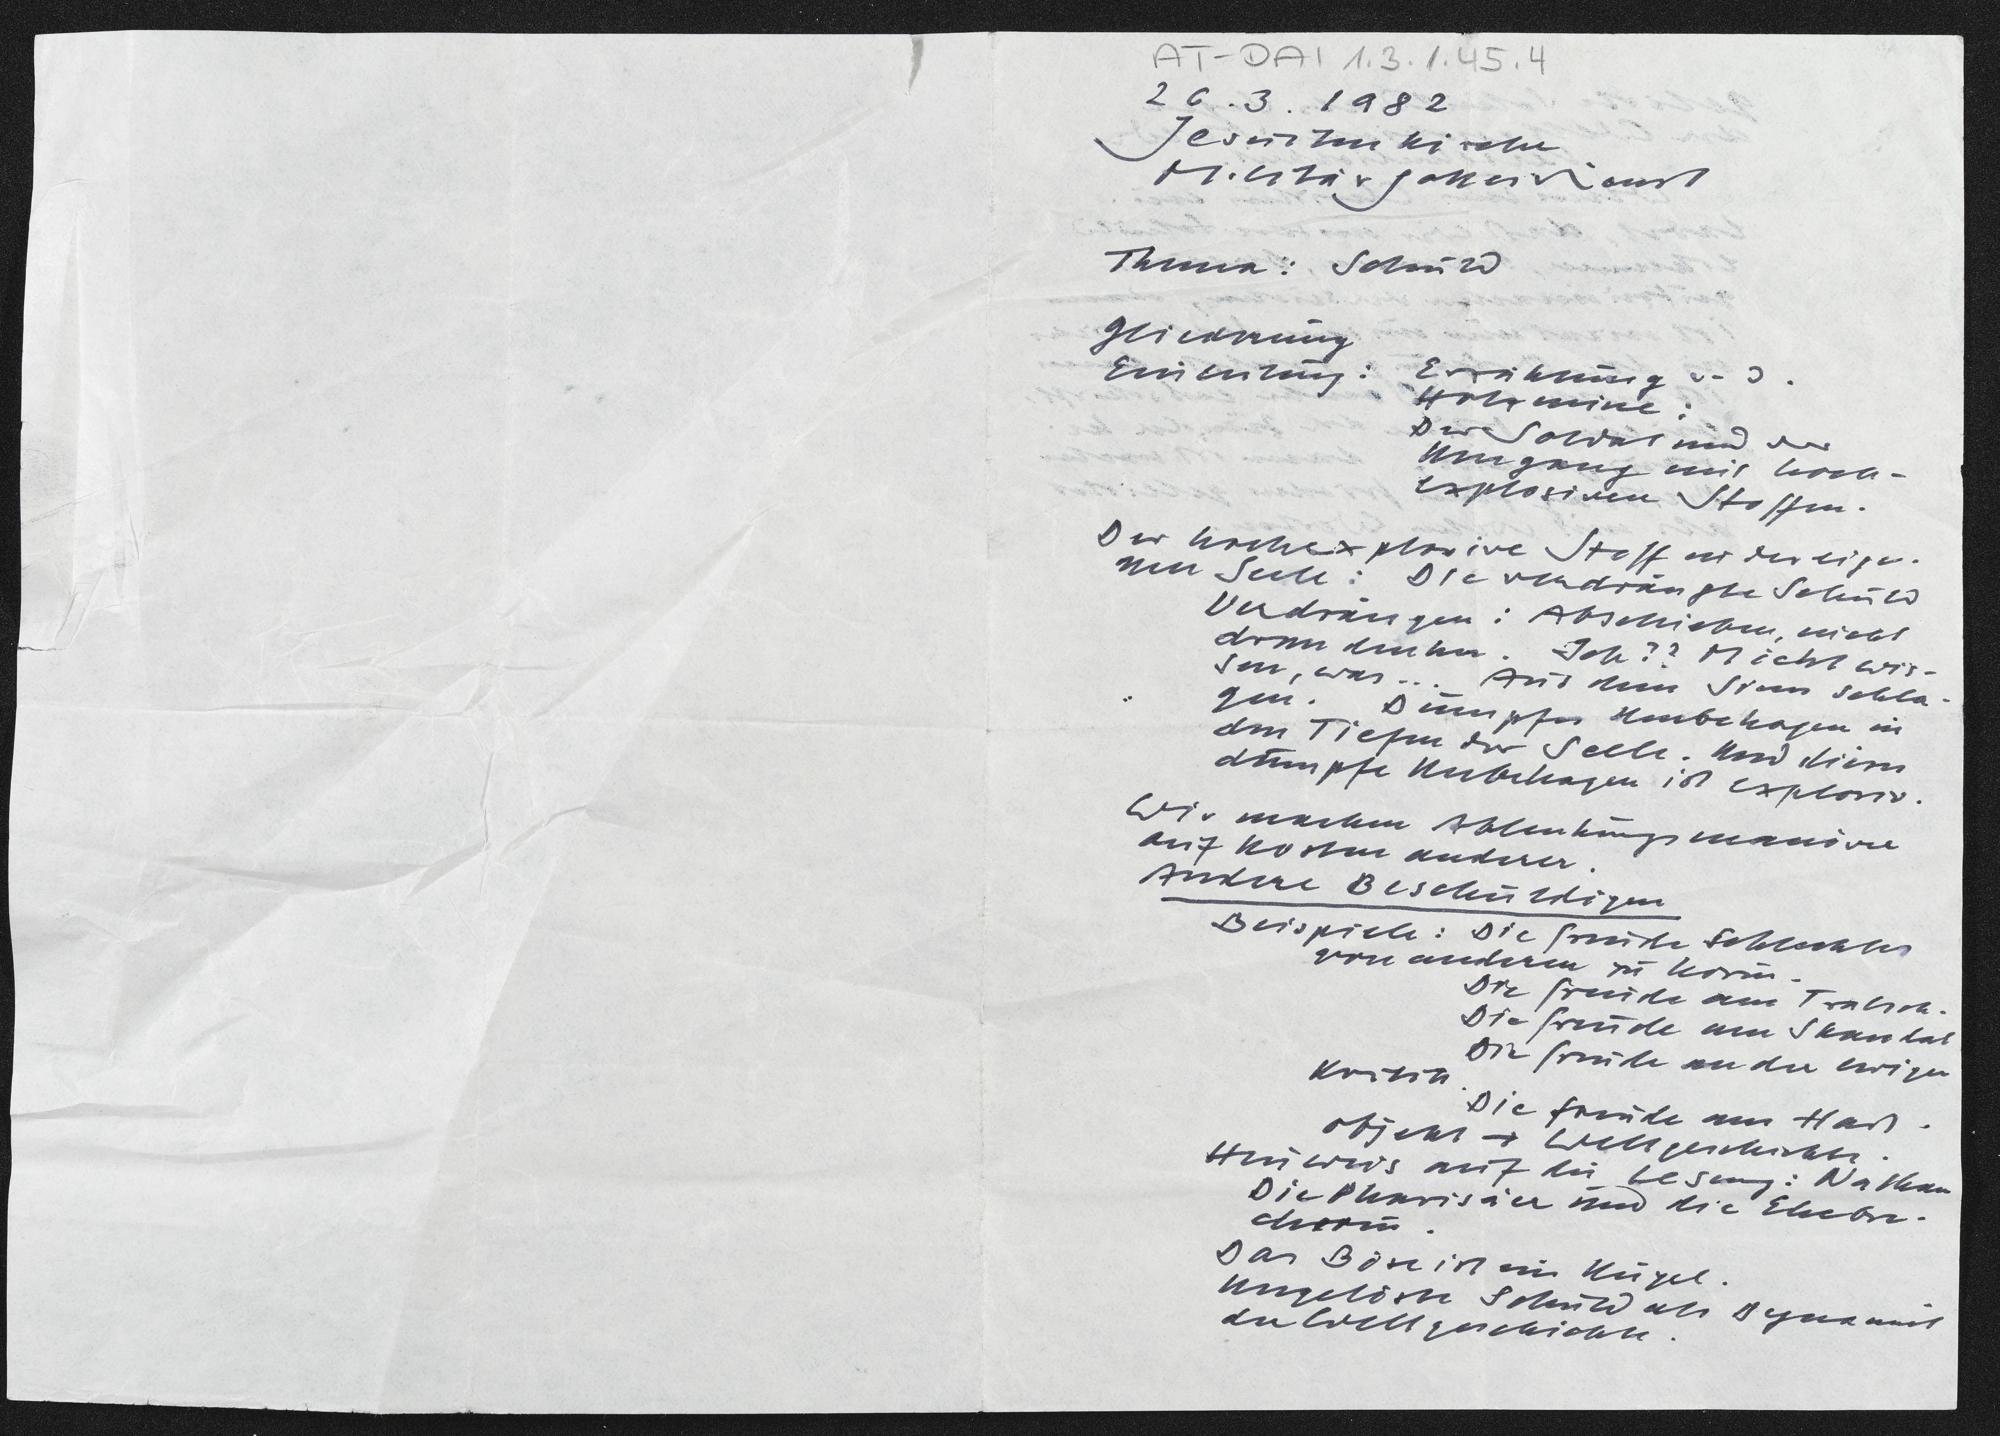 AT-DAI 1.3.1.45.4
26.3.1982
Jesuitenkirche
Militärgottesdienst
Thema: Schuld
Gliederung
Einleitung: Erzählung v. d.
Holzmine:
Der Soldat und der
Umgang mit hoch-
explosiven Stoffen.
Der hochexplosive Stoff in der eige-
nen Seele: Die verdrängte Schuld
Verdrängen: Abschieben, nicht
dran denken. Ich?? Nicht wis-
sen, was... Aus dem Sinn schla-
gen. Dumpfes Unbehagen in
den Tiefen der Seele. Und dieses
dumpfe Unbehagen ist explosiv.
Wir machen Ablenkungsmanöver
auf Kosten anderer.
Andere Beschuldigen
Beispiele: Die Freude Schlechtes
von anderen zu hören.
Die Freude am Tratsch.
Die Freude am Skandal
Die Freude an der ewigen
Kritik.
Die Freude am Hass.
objekt → Weltgeschichte.
Hinweis auf die Lesung: Nathan
Die Pharisäer und die Ehebre-
cherin.
Das Böse ist ein Kugel.
Ungelöste Schuld als Dynamit
der Weltgeschichte.